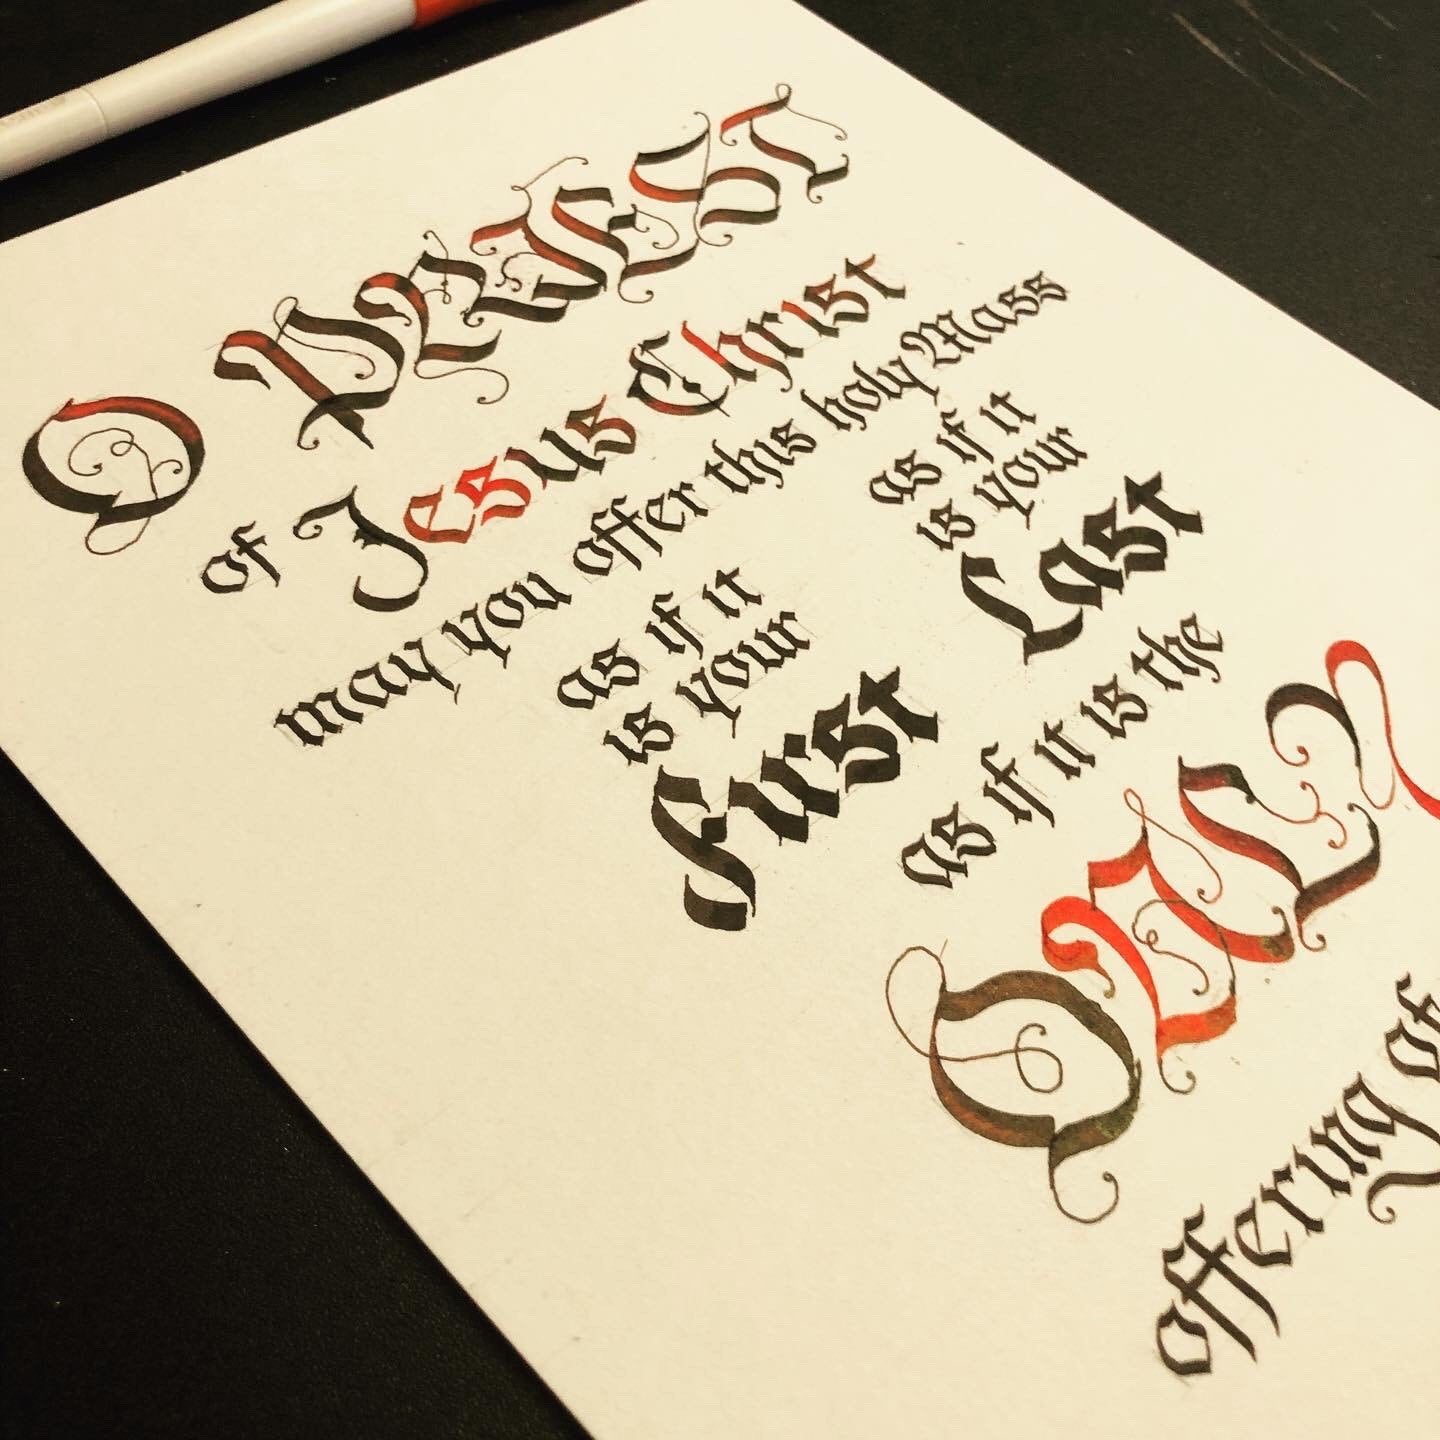 O PRIEST
of Jesus Christ
may you offer this holy Mass
as if it
is your
First
as if it
is your
Last
as if it is the
ONLY
offering